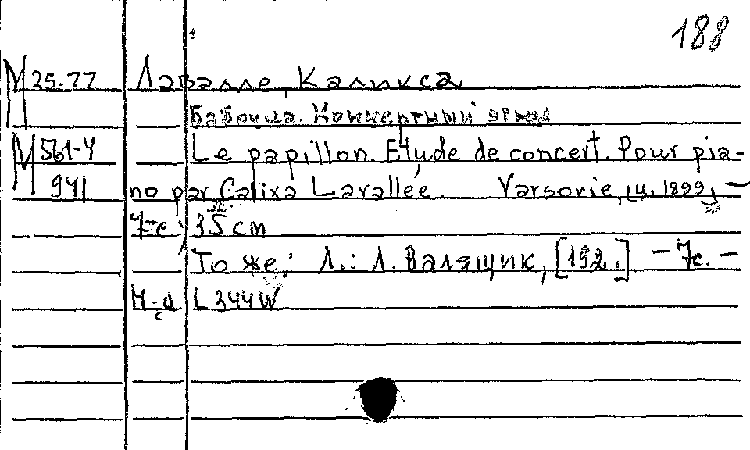 188
М 25.77 Лавалле, Каликса
Бабочка. Концертный этюд
М 561-4 Le papillon. Etude de concert. Pour pia-
941 no par Calixa Lavallée. Varsovie, 1899, —
7 с. 35 см
То же: Л.: Л. Валящик, [192.] — 7с. —
Н-д L 344 W